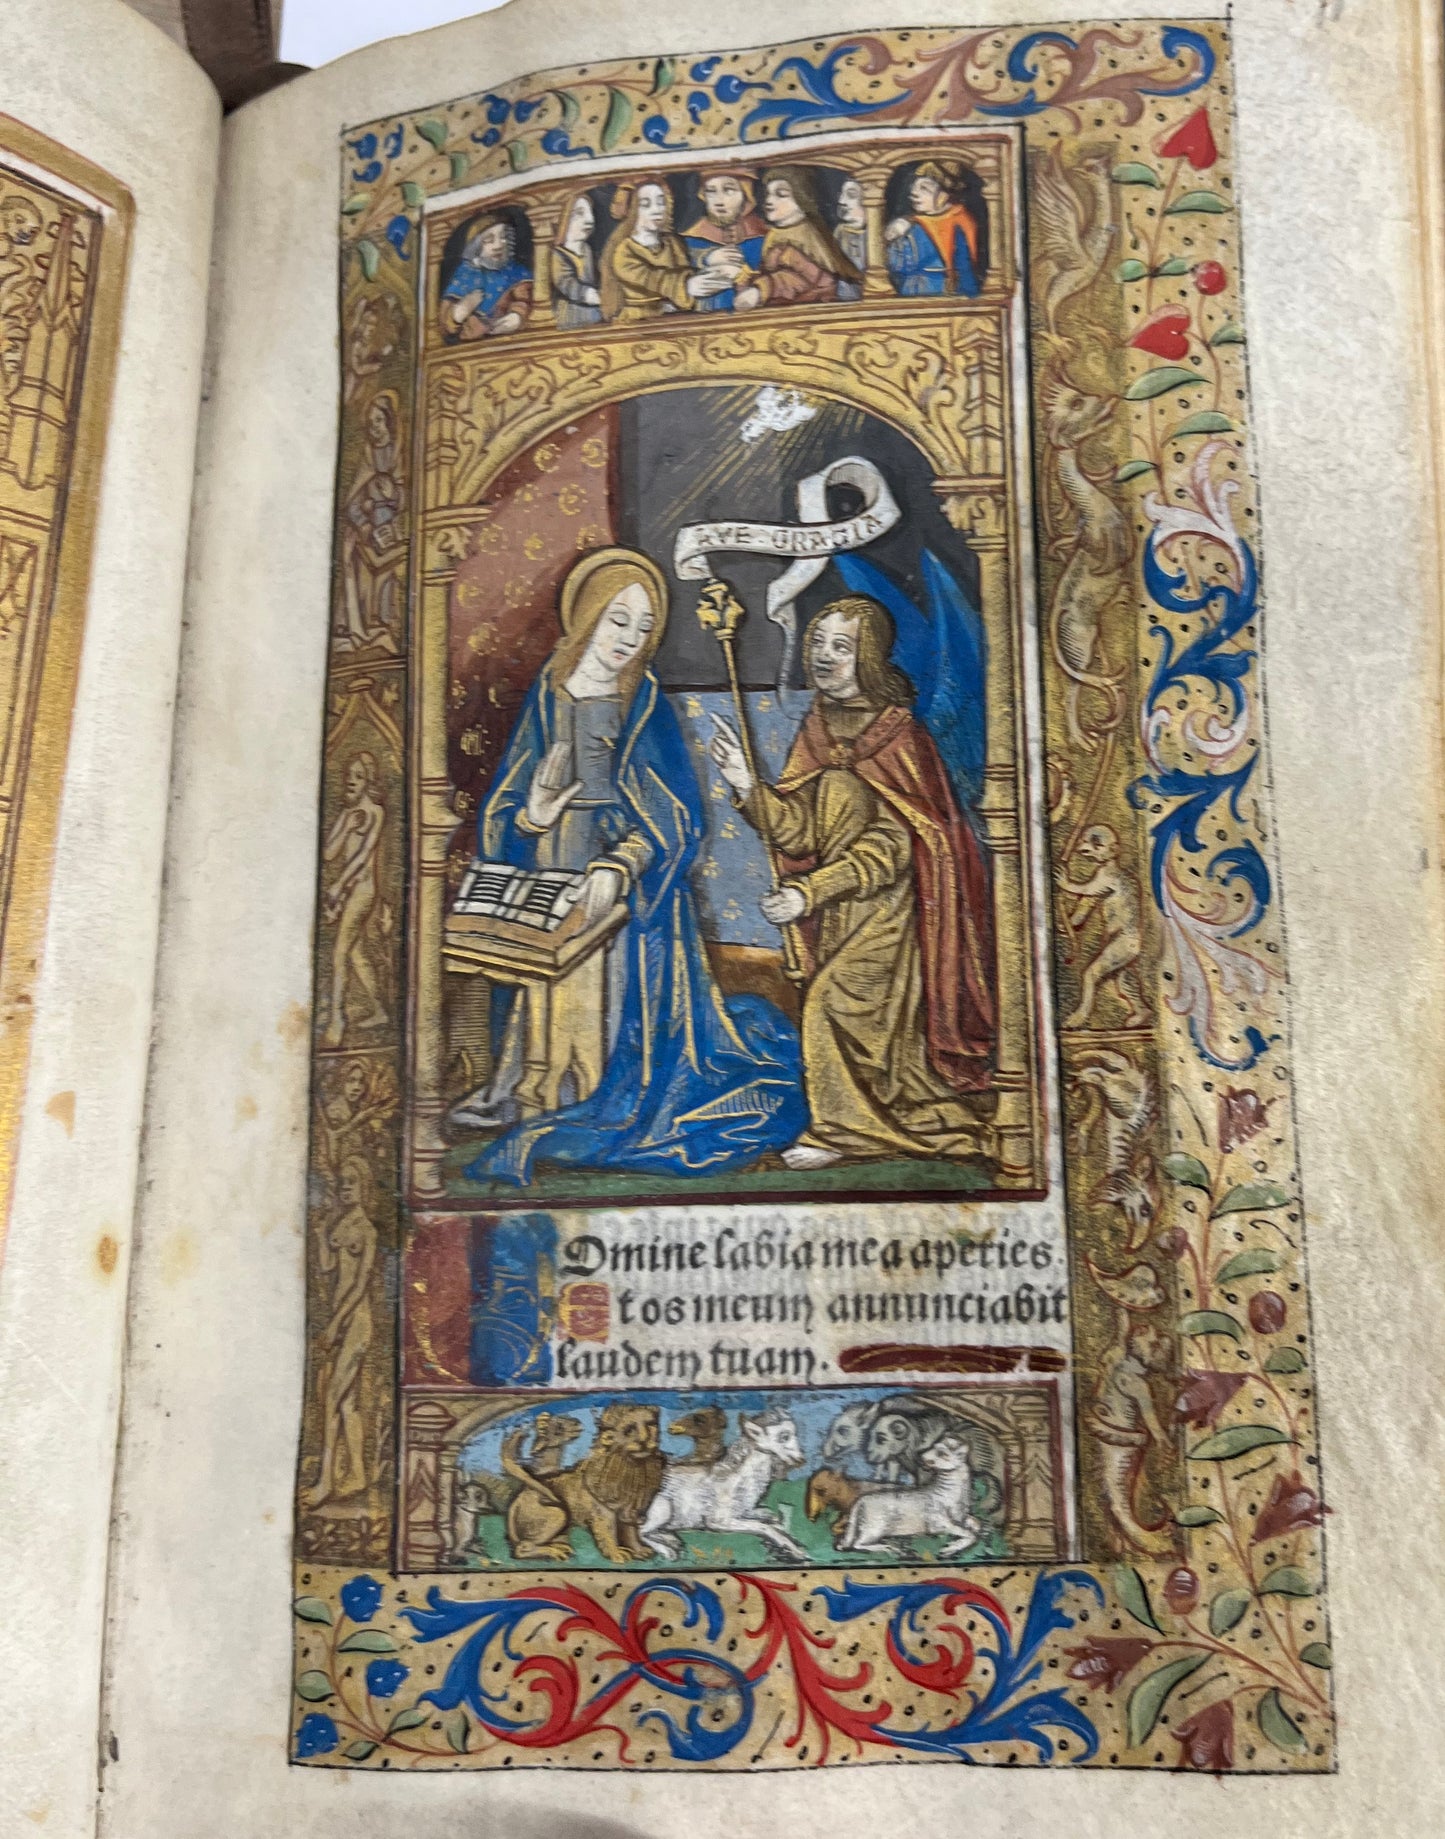 AVE · GRACIA
Dmine labia mea aperies.
Et os meum annunciabit
laudem tuam.